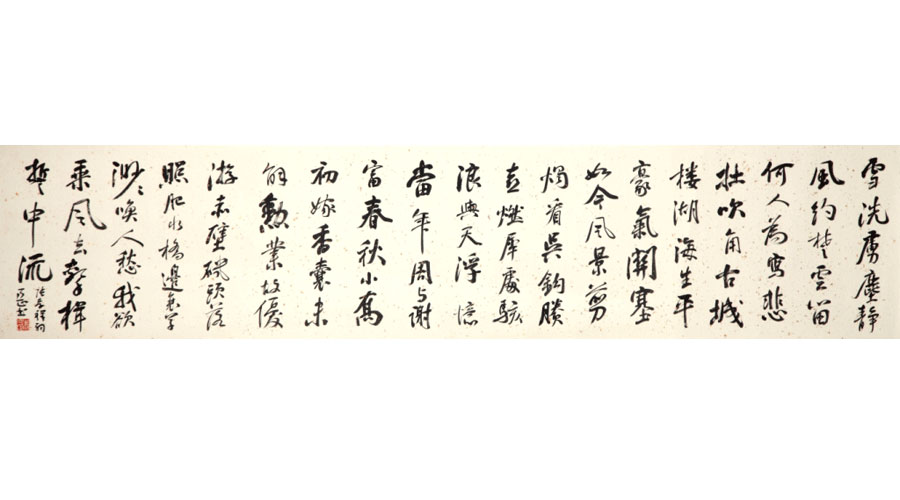 雪洗虜塵靜
風約楚雲留
何人為寫悲
壯吹角古城
楼湖海生平
豪氣關塞
如今風景剪
燭看吳鈎賸
喜燃犀處駭
浪與天浮憶
當年周与謝
富春秋小喬
初嫁香囊未
解勳業故優
游赤壁磯頭落
照肥水橋邊衰草
渺々喚人愁我欲
乘風去擊楫
誓中流
張孝祥詞
書